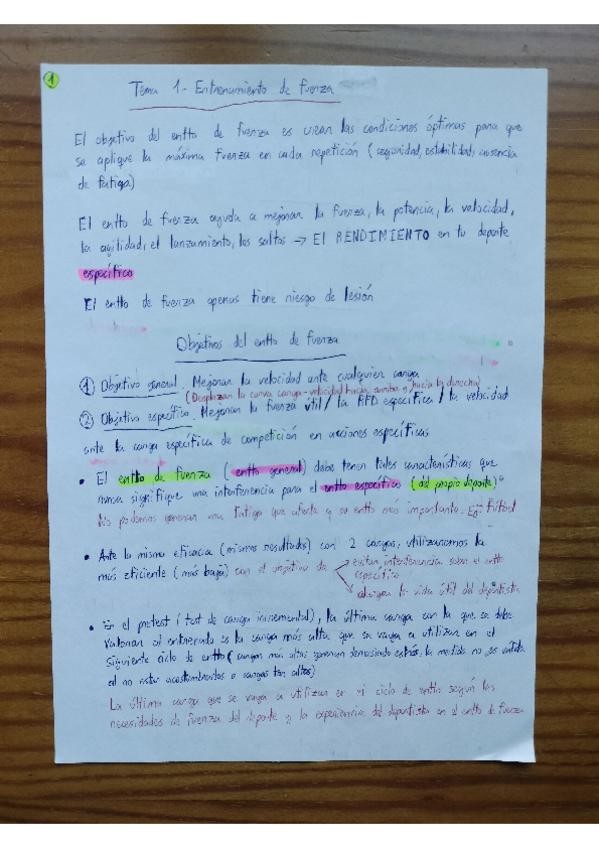 1
Tema 1.- Entrenamiento de fuerza
El objetivo del entto de fuerza es crear las condiciones óptimas para que
se aplique la máxima fuerza en cada repetición (seguridad, estabilidad, ausencia
de fatiga)
El entto de fuerza ayuda a mejorar la fuerza, la potencia, la velocidad,
la agilidad, el lanzamiento, los saltos → El RENDIMIENTO en tu deporte
específico
El entto de fuerza apenas tiene riesgo de lesión
Objetivos del entto de fuerza
① Objetivo general. Mejorar la velocidad ante cualquier carga
(Desplazar la curva carga-velocidad hacia arriba y hacia la derecha)
② Objetivo específico. Mejorar la fuerza útil / la RFD específica / la velocidad
ante la carga específica de competición en acciones específicas
• El entto de fuerza (entto general) debe tener tales características que
nunca signifique una interferencia para el entto específico (del propio deporte).
No podemos generar una fatiga que afecte a su entto más importante. Ej: Fútbol
• Ante la misma eficacia (mismos resultados) con 2 cargas, utilizaremos la
más eficiente (más baja) con el objetivo de → evitar interferencia sobre el entto
específico
→ alargar la vida útil del deportista
• En el pretest (test de carga incremental), la última carga con la que se debe
valorar al entrenado es la carga más alta que se vaya a utilizar en el
siguiente ciclo de entto (cargas más altas generan demasiado estrés, la medida no es válida
al no estar acostumbrados a cargas tan altas)
La última carga que se vaya a utilizar en el ciclo de entto según las
necesidades de fuerza del deporte y la experiencia del deportista en el entto de fuerza